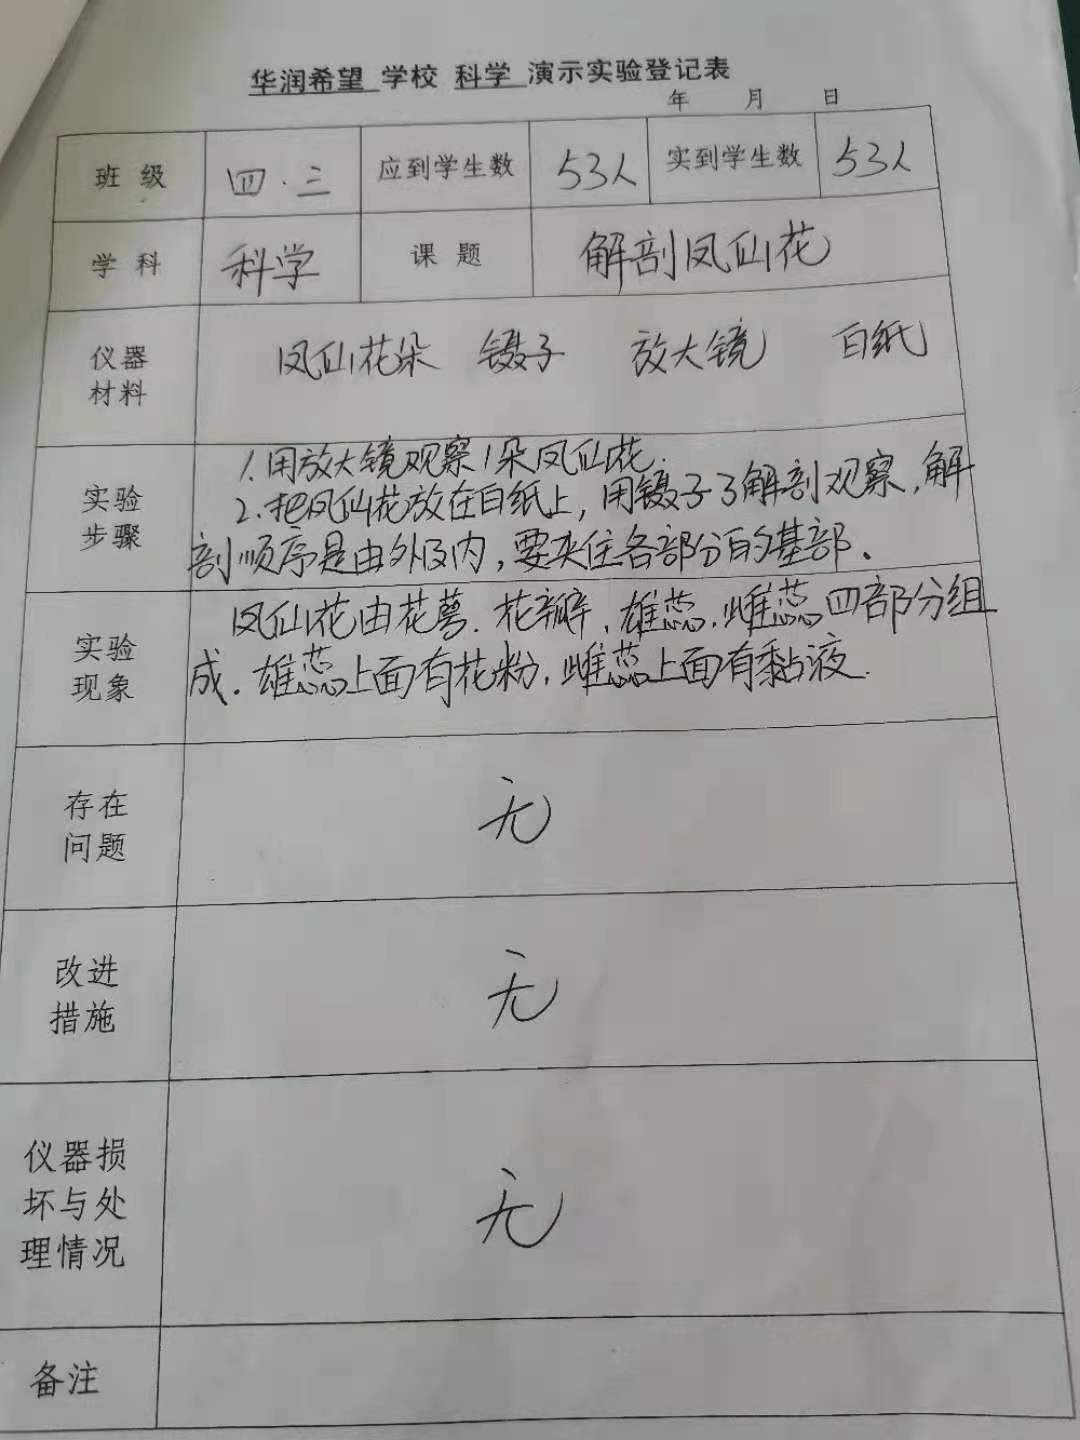 华润希望 学校 科学 演示实验登记表
年 月 日
班 级 四.三 应到学生数 53人 实到学生数 53人
学 科 科学 课 题 解剖凤仙花
仪器
材料
凤仙花朵 镊子 放大镜 白纸
实验
步骤
1.用放大镜观察1朵凤仙花.
2.把凤仙花放在白纸上，用镊子了解剖观察,解
剖顺序是由外及内，要夹住各部分的基部。
实验
现象
凤仙花由花萼.花瓣、雄蕊.雌蕊四部分组
成.雄蕊上面有花粉,雌蕊上面有黏液.
存在
问题
无
改进
措施
无
仪器损
坏与处
理情况
无
备注